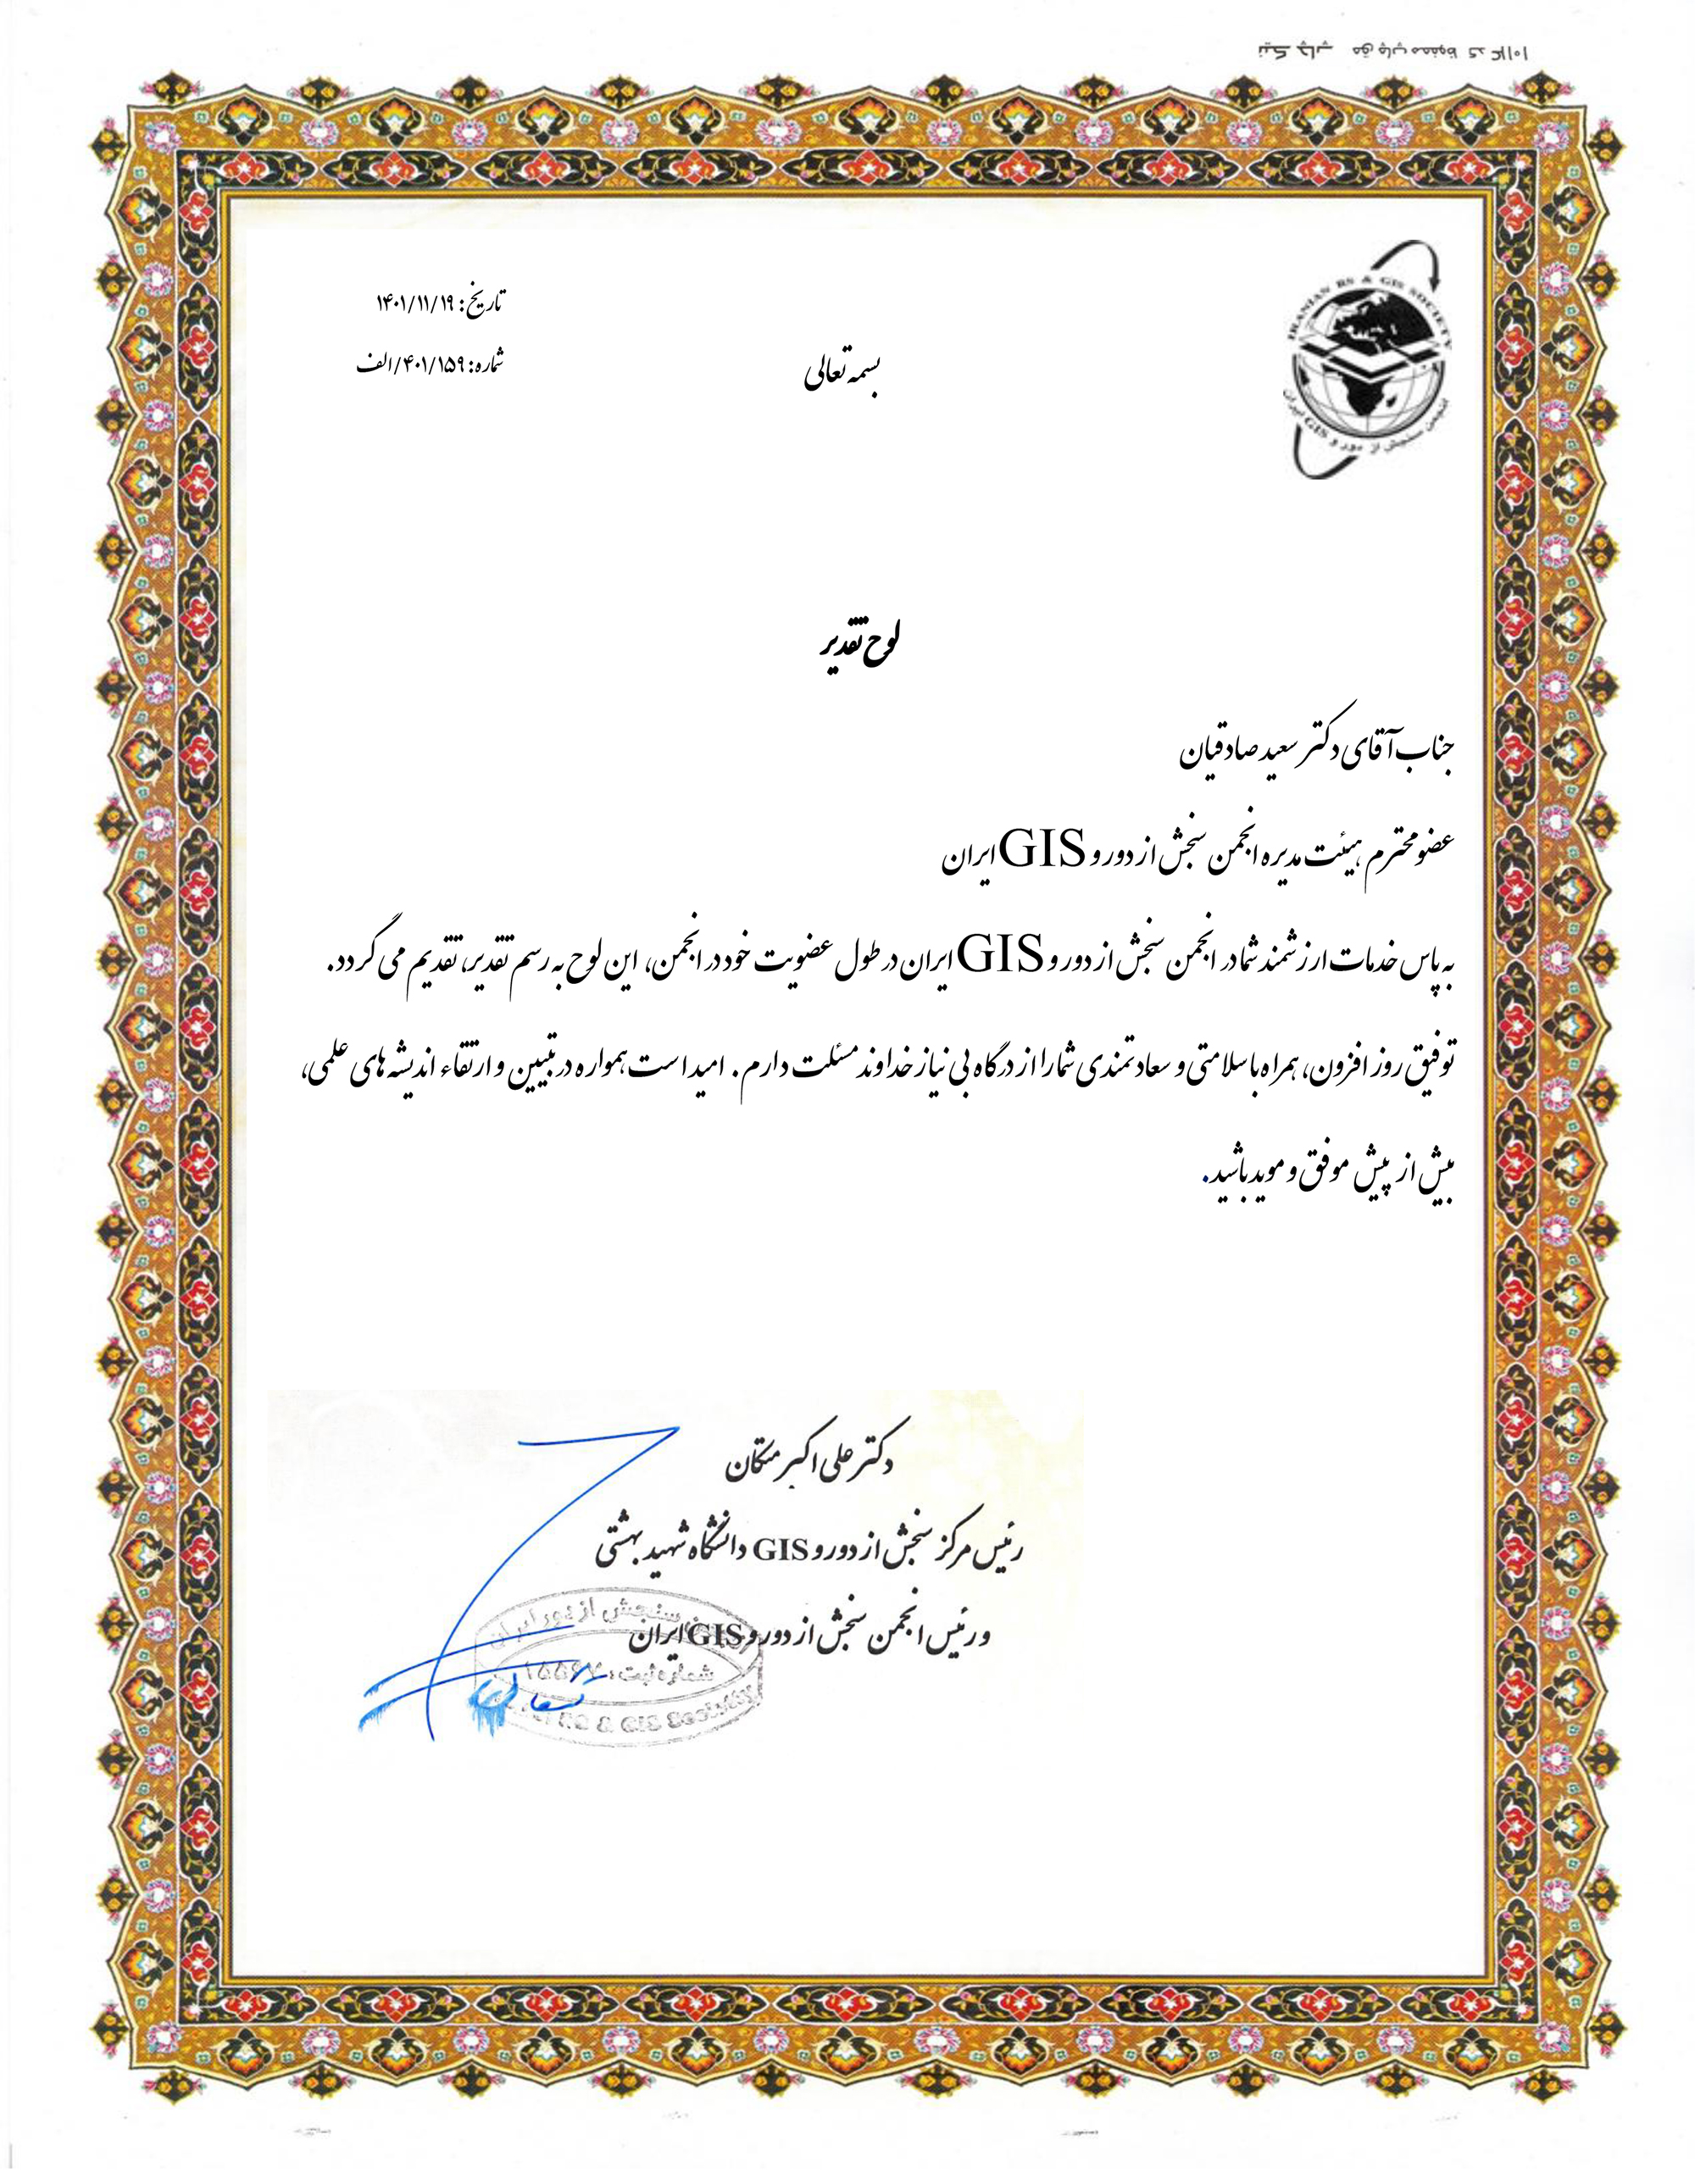 IRANIAN RS & GIS SOCIETY
انجمن سنجش از دور و GIS ایران
تاریخ: ۱۴۰۱/۱۱/۱۹
شماره: ۴۰۱/۱۵۹/الف
بسمه تعالی
لوح تقدیر
جناب آقای دکتر سعید صادقیان
عضو محترم هیئت مدیره انجمن سنجش از دور و GIS ایران
به پاس خدمات ارزشمند شما در انجمن سنجش از دور و GIS ایران در طول عضویت خود در انجمن، این لوح به رسم تقدیر، تقدیم می گردد.
توفیق روز افزون، همراه با سلامتی و سعادتمندی شما را از درگاه بی نیاز خداوند مسئلت دارم. امید است همواره در تبیین و ارتقاء اندیشه های علمی،
بیش از پیش موفق و موید باشید.
دکتر علی اکبر متکان
رئیس مرکز سنجش از دور و GIS دانشگاه شهید بهشتی
و رئیس انجمن سنجش از دور و GIS ایران
سنجش از دور ایران
شماره ثبت:
RS & GIS Society